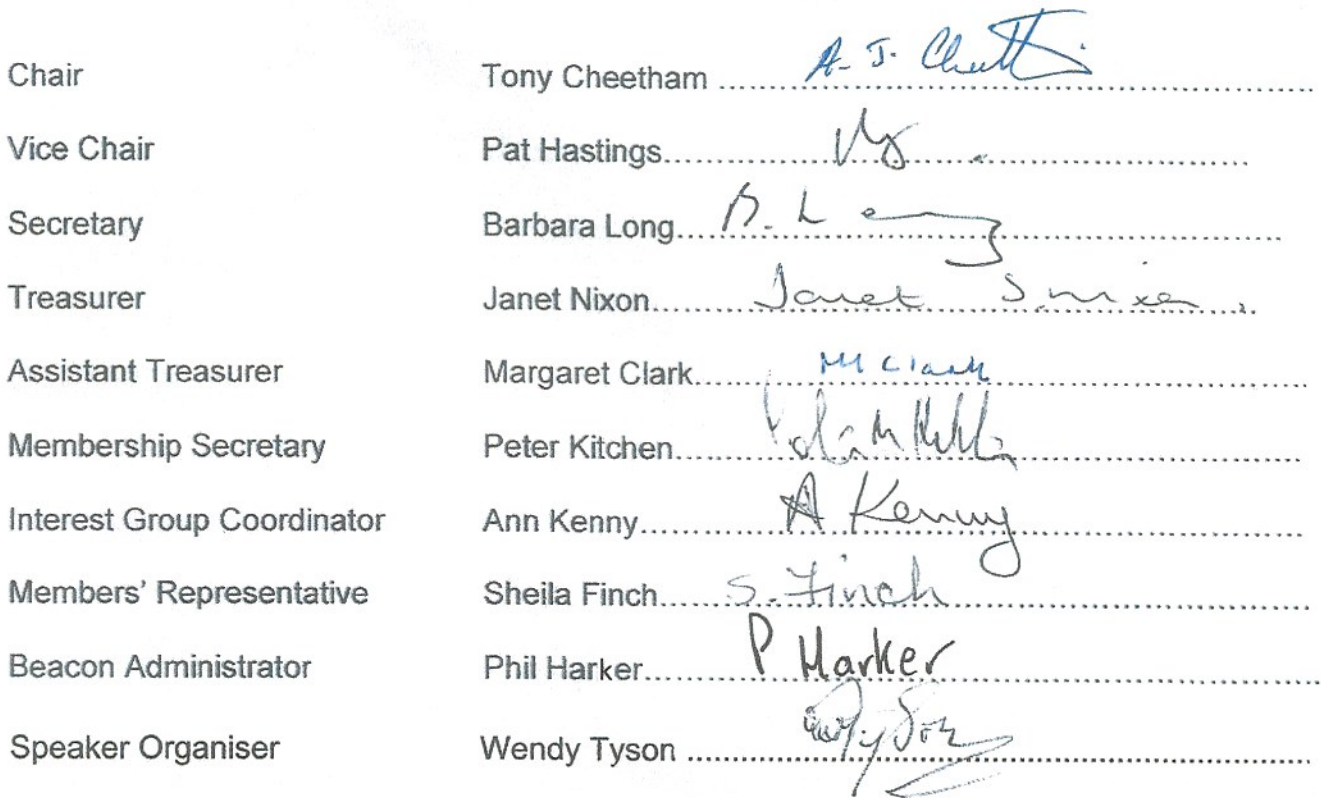 Chair Tony Cheetham ........ A. J. Cheetham
Vice Chair Pat Hastings........
Secretary Barbara Long........ B. Long
Treasurer Janet Nixon........ Janet S. Nixon
Assistant Treasurer Margaret Clark........ M Clark
Membership Secretary Peter Kitchen........
Interest Group Coordinator Ann Kenny........ A Kenny
Members' Representative Sheila Finch........ S. Finch
Beacon Administrator Phil Harker........ P Harker
Speaker Organiser Wendy Tyson ........